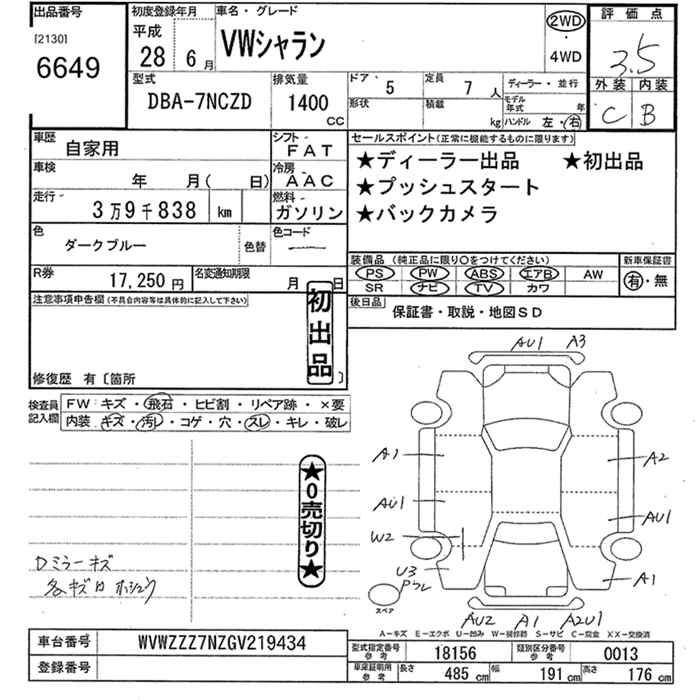 出品番号
[2130]
6649
初度登録年月
平成
28 6月
車名・グレード
VWシャラン
2WD
・
4WD
評価点
3.5
外装 内装
C B
型式
DBA-7NCZD
排気量
1400
CC
ドア・形状
5
定員
7人
積載
kg
ディーラー・並行
モデル年式
年
ハンドル 左・右
車歴
自家用
シフト
FAT
車検
年 月( 日)
冷房
AAC
走行
3万9千838 km
燃料
ガソリン
色
ダークブルー
色替
色コード
R券
17,250円
名変通知期限
月 日
セールスポイント(正常に機能するものに限ります)
★ディーラー出品 ★初出品
★プッシュスタート
★バックカメラ
装備品 (純正品に限り○をつけてください)
新車保証書
PS PW ABS エアB AW
SR ナビ TV カワ
有・無
後日品
保証書・取説・地図SD
注意事項申告欄(不具合内容等は具体的に記入して下さい)
初出品
修復歴 有〔箇所 〕
検査員記入欄
FW:キズ・飛石・ヒビ割・リペア跡・×要
内装:キズ・汚レ・コゲ・穴・スレ・キレ・破レ
★0売切り★
Dミラーキズ
各キズ ホシュウ
AU1 A3
A1 A2
AU1 AU1
W2
U3
Pフレ
A1
スペア
AU2 A1 A2U1
A-キズ E-エクボ U-凹み W-補修跡 S-サビ C-腐食 XX-交換済
車台番号
WVWZZZ7NZGV219434
登録番号
型式指定番号 参考
18156
類別区分番号 参考
0013
車庫証明用 参考
長さ 485 cm 幅 191 cm 高さ 176 cm